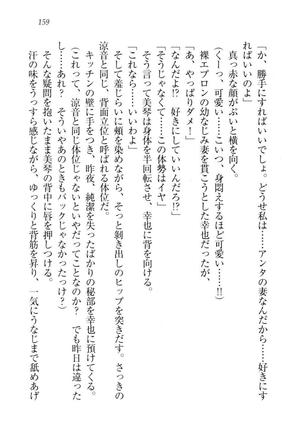 159
「か、勝手にすればいいでしょ。どうせ私は……アンタの妻なんだから……好きにす
ればいいのよ」
真っ赤な顔がぷいと横を向く。
（くーっ、可愛い……こいつ、身悶えするほど可愛い……!!）
裸エプロンの幼なじみ妻を貫こうとした幸也だったが、
「あ、やっぱりダメ！」
「なんだよ!? 好きにしていいんだろ!?」
「だ、だって……この体勢はイヤ」
そう言って美琴は身体を半回転させ、幸也に背を向ける。
「これなら……いいわよ」
そして羞じらいに頬を染めながら、そっと剥き出しのヒップを突きだす。さっきの
涼音と同じ、背面立位と呼ばれる体位だ。
キッチンの壁に手をつき、昨夜、純潔を失ったばかりの秘部を幸也に預けてくる。
（なんだ？　涼音と同じ体位じゃないといやだってことなのか？　でも昨日は違った
よなあ……あれ？　そういやあのときもバックじゃなかったっけ？）
そんな疑問を抱いたまま美琴の背中に唇を押しつける。
汗の味をうっすら感じながら、ゆっくりと背筋を昇り、一気にうなじまで舐めあげ